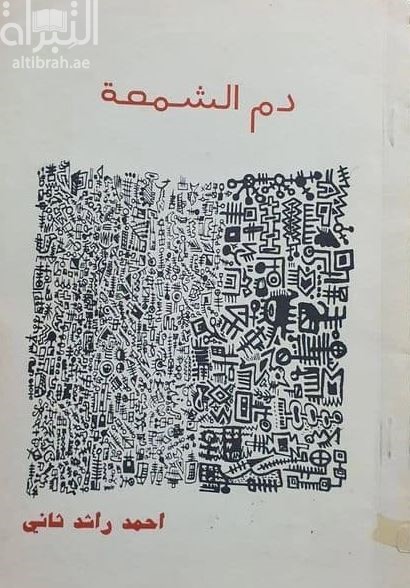 التبراة
altibrah.ae
دم الشمعة
احمد راشد ثاني